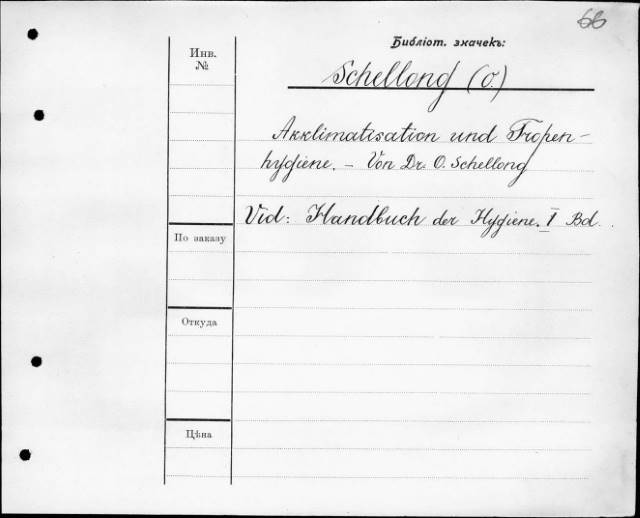 66
Библіот. значекъ:
Инв.
№
Schellong (O.)
Akklimatisation und Tropen-
hygiene. – Von Dr. O. Schellong
Vid: Handbuch der Hygiene. I Bd.
По заказу
Откуда
Цѣна